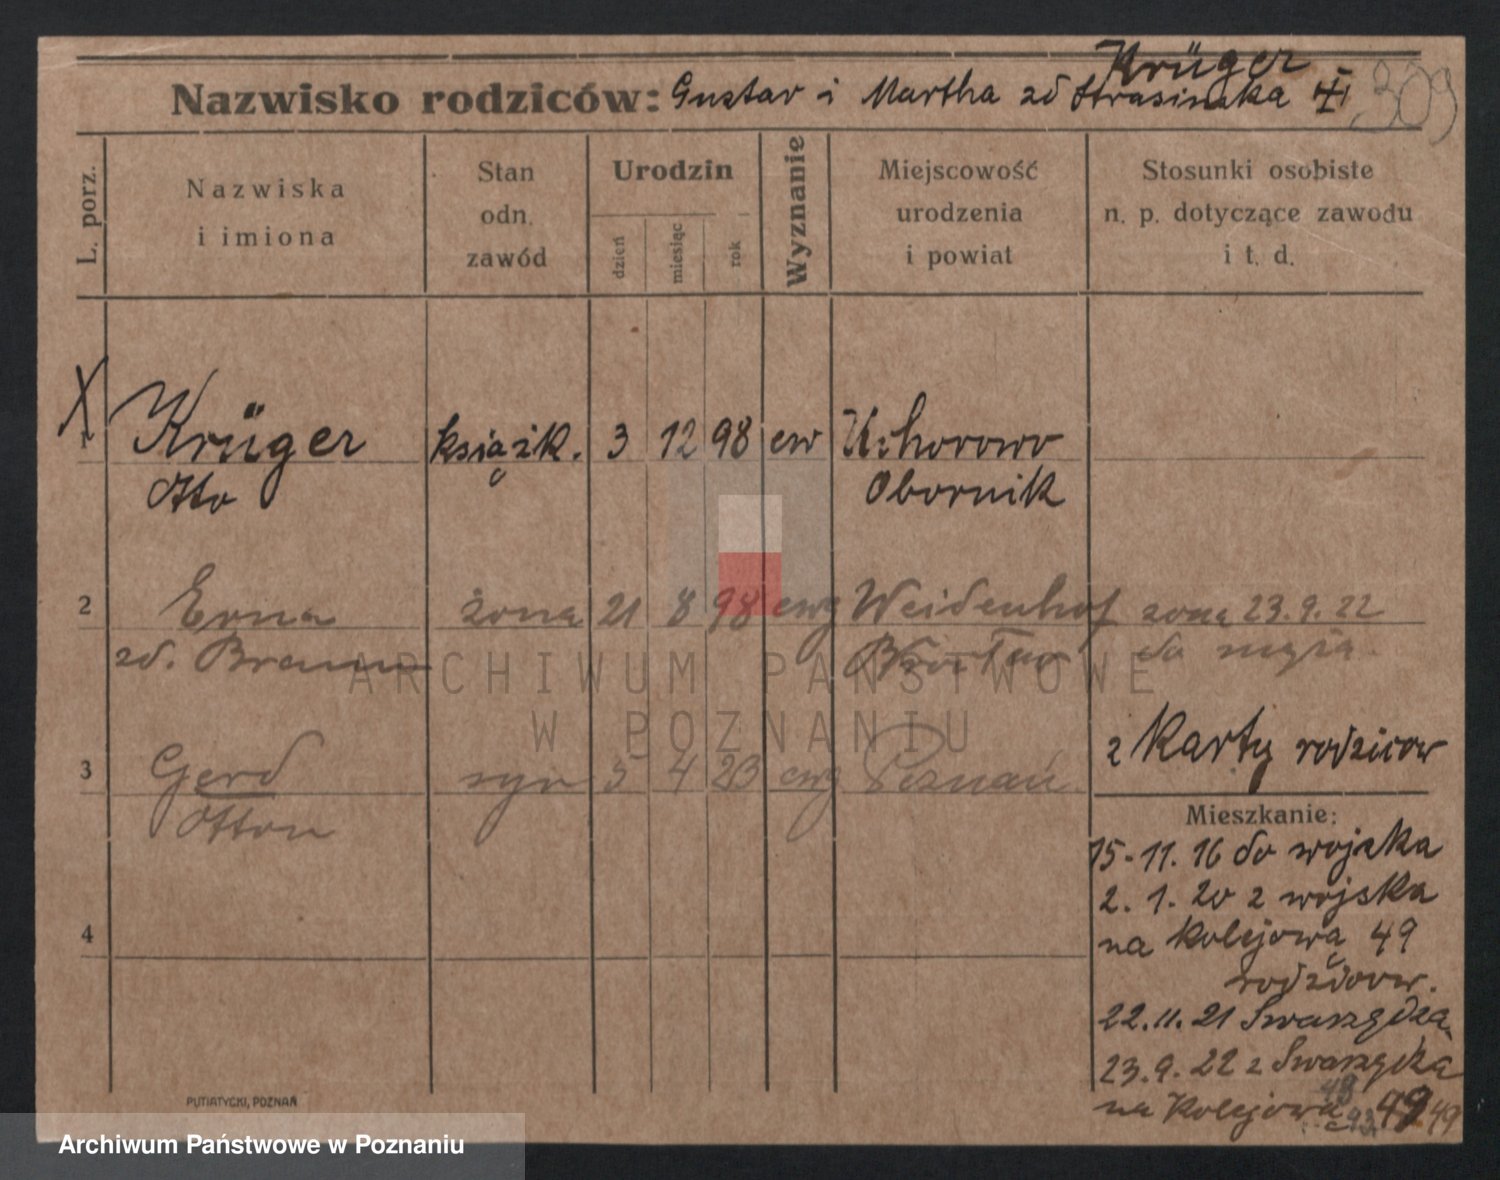 Krüger
Nazwisko rodziców: Gustav i Martha zd Strasinska 309
L. porz.
Nazwiska
i imiona
Stan
odn.
zawód
Urodzin
dzień
miesiąc
rok
Wyznanie
Miejscowość
urodzenia
i powiat
Stosunki osobiste
n. p. dotyczące zawodu
i t. d.
X
1 Krüger książk. 3 12 98 ew Uchorowo
Otto Obornik
2 Erna żona 21 8 98 ewg Weidenhof żona 23.9.22
zd. Braun do męża
3 Gerd syn 5 4 23 ewg Poznań
Otton
z Karty rodziców
Mieszkanie:
15.11.16 do wojska
2.1.20 z wojska
na Kolejową 49
rodziców.
4
22.11.21 Swarzędza
23.9.22 z Swarzędza
na Kolejową 49 49
PUTIATYCKI, POZNAŃ
ARCHIWUM PAŃSTWOWE
W POZNANIU
Archiwum Państwowe w Poznaniu